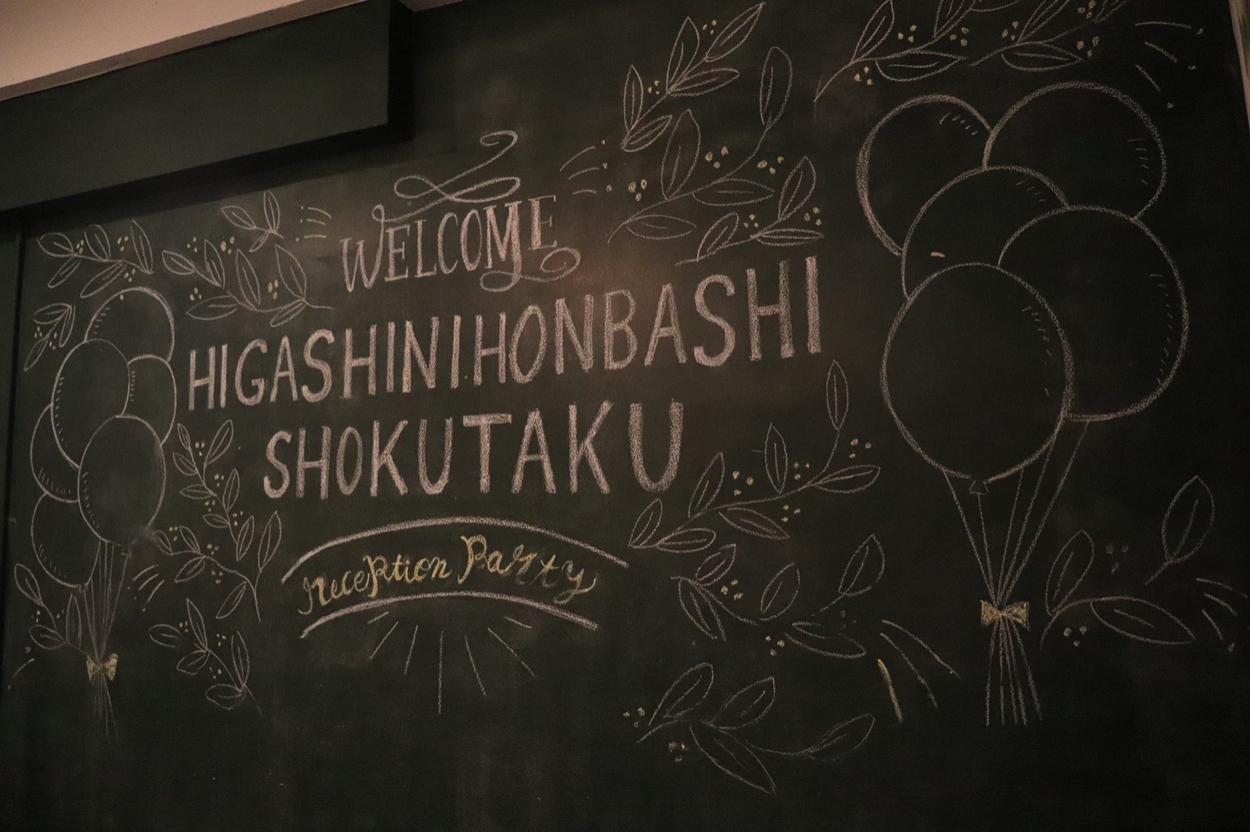 WELCOME
HIGASHINIHONBASHI
SHOKUTAKU
Reception Party